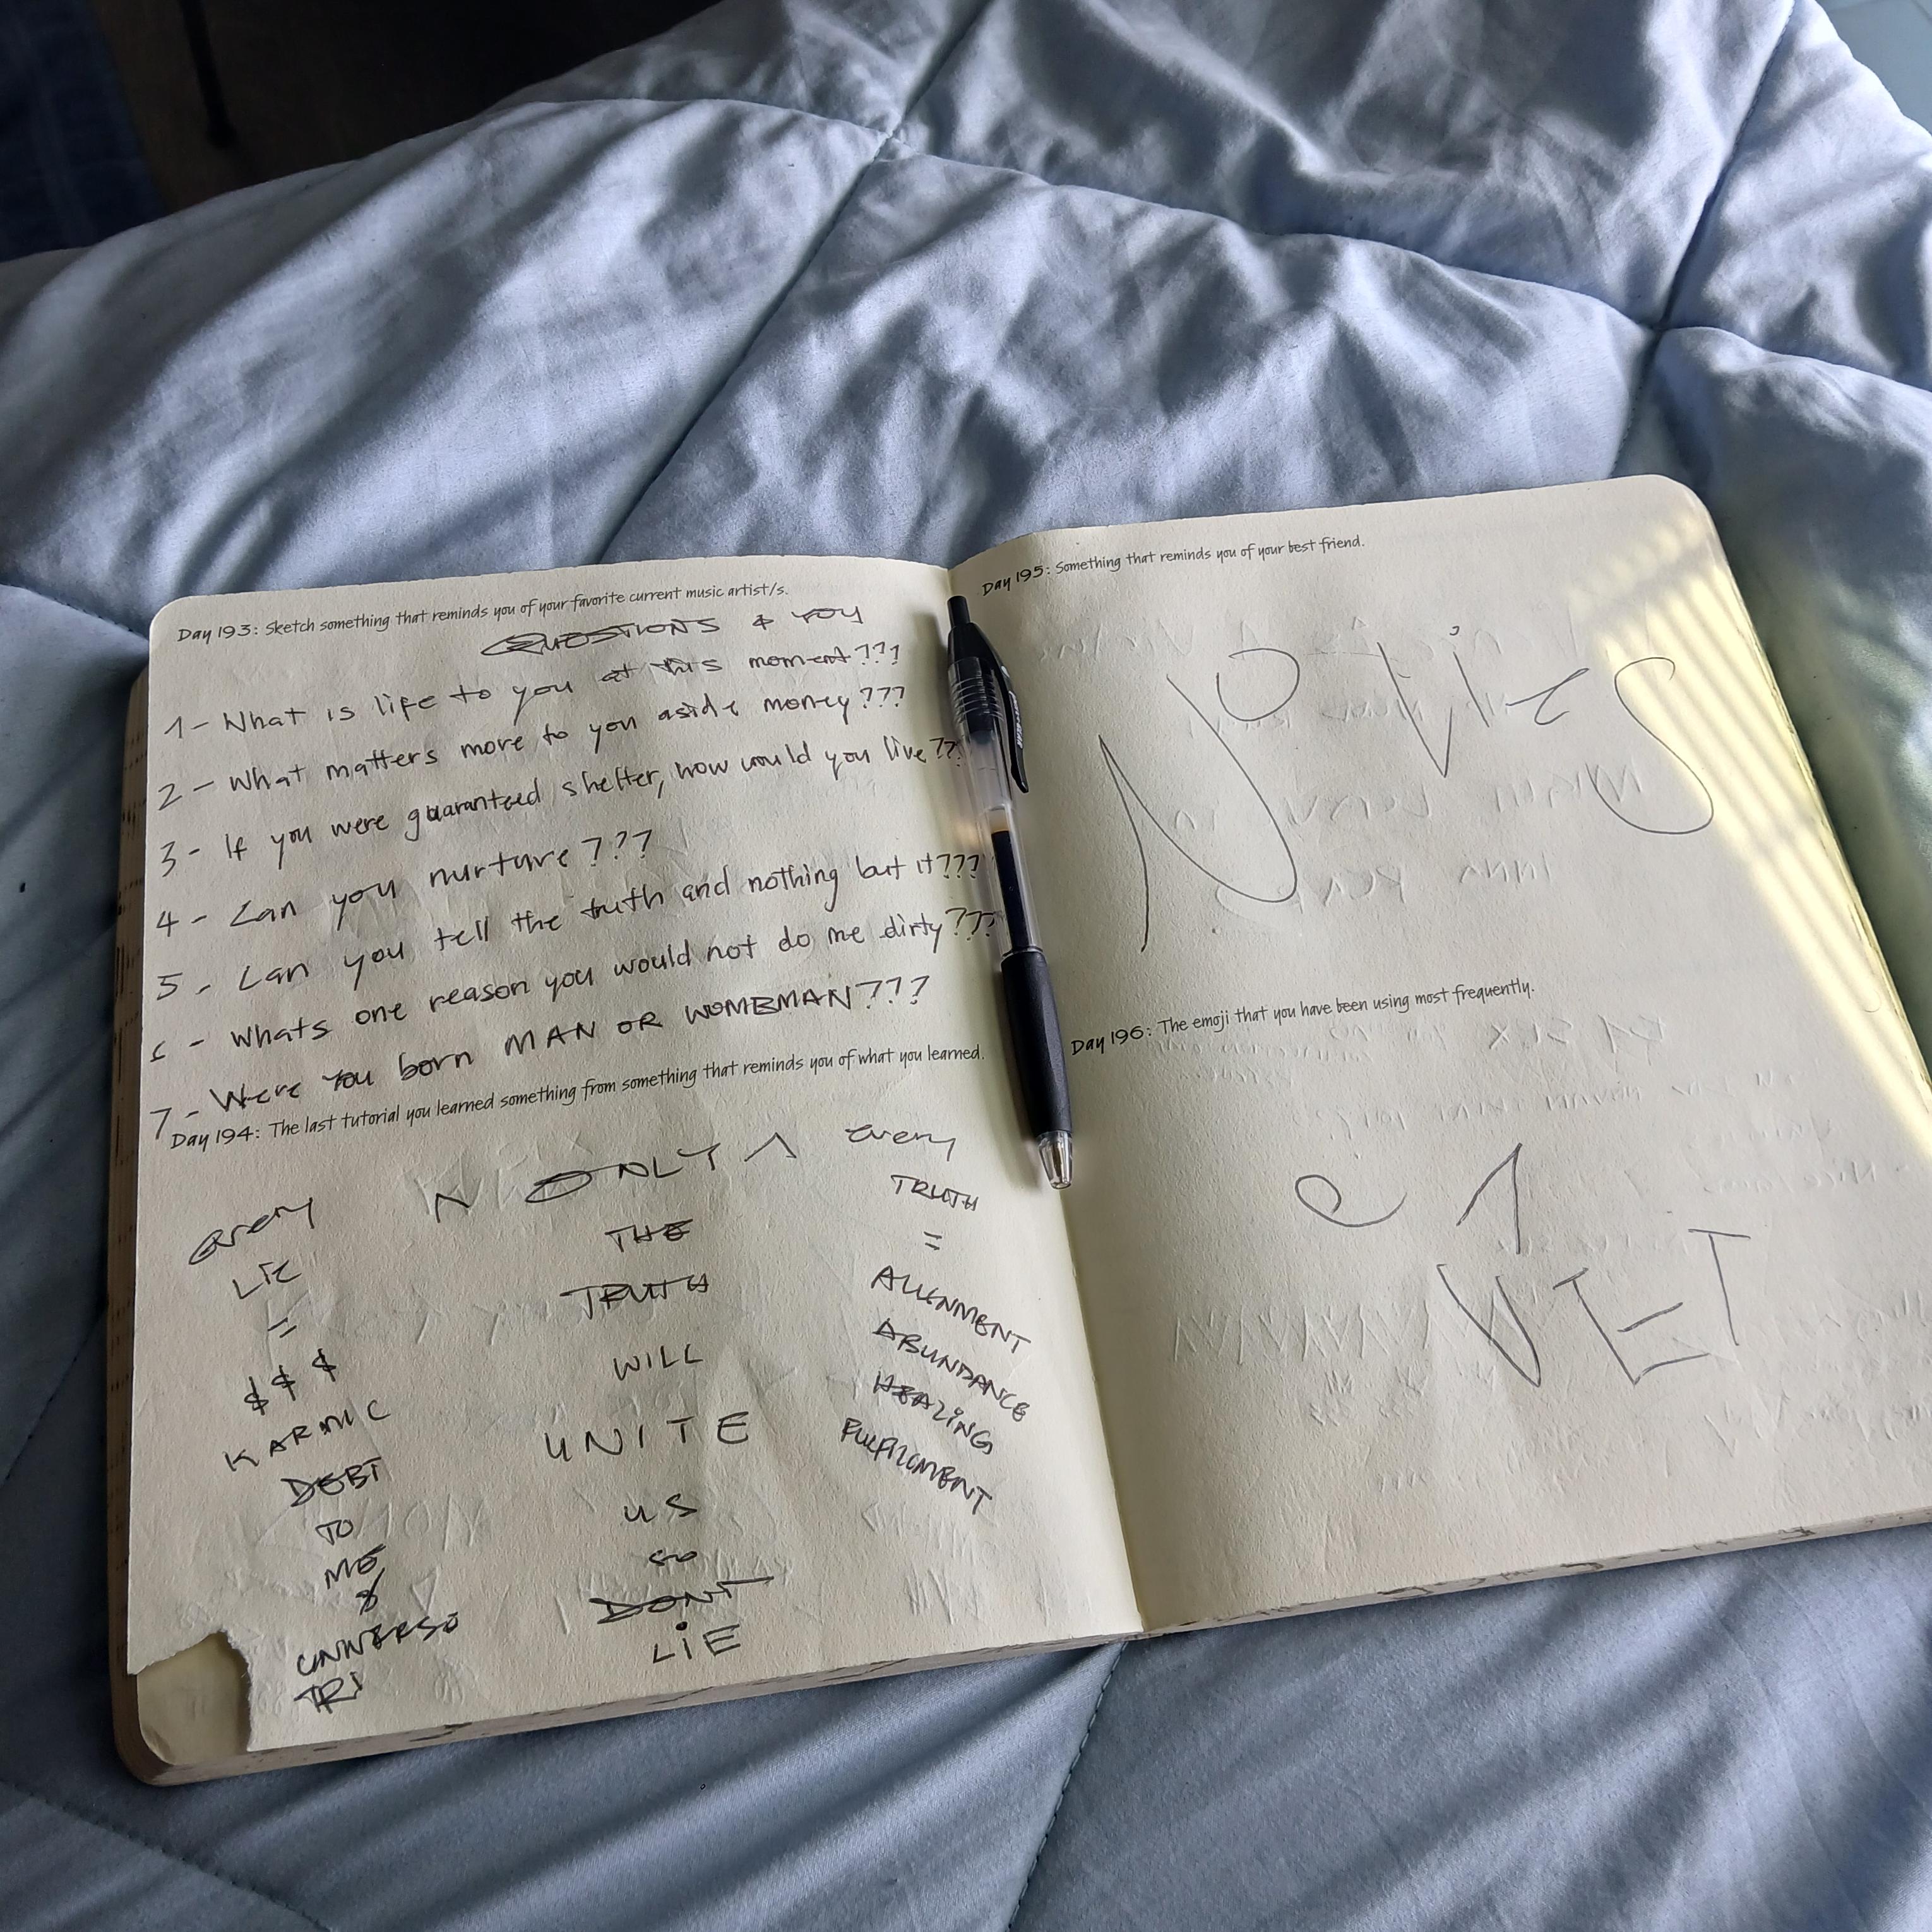 Day 193: Sketch something that reminds you of your favorite current music artist/s.
QUESTIONS 4 YOU
1 - What is life to you at this moment???
2 - What matters more to you aside money???
3 - If you were guaranteed shelter, how would you live???
4 - Can you nurture???
5 - Can you tell the truth and nothing but it???
6 - Whats one reason you would not do me dirty???
7 - Were you born MAN OR WOMBMAN???
Day 194: The last tutorial you learned something from something that reminds you of what you learned.
every
LIE
=
$ $ $
KARMIC
DEBT
TO
ME
&
UNIVERSE
TRI
ONLY
THE
TRUTH
WILL
UNITE
US
so
DONT
LiE
every
TRUTH
=
ALIGNMENT
ABUNDANCE
HEALING
FULFILLMENT
Day 195: Something that reminds you of your best friend.
Day 196: The emoji that you have been using most frequently.